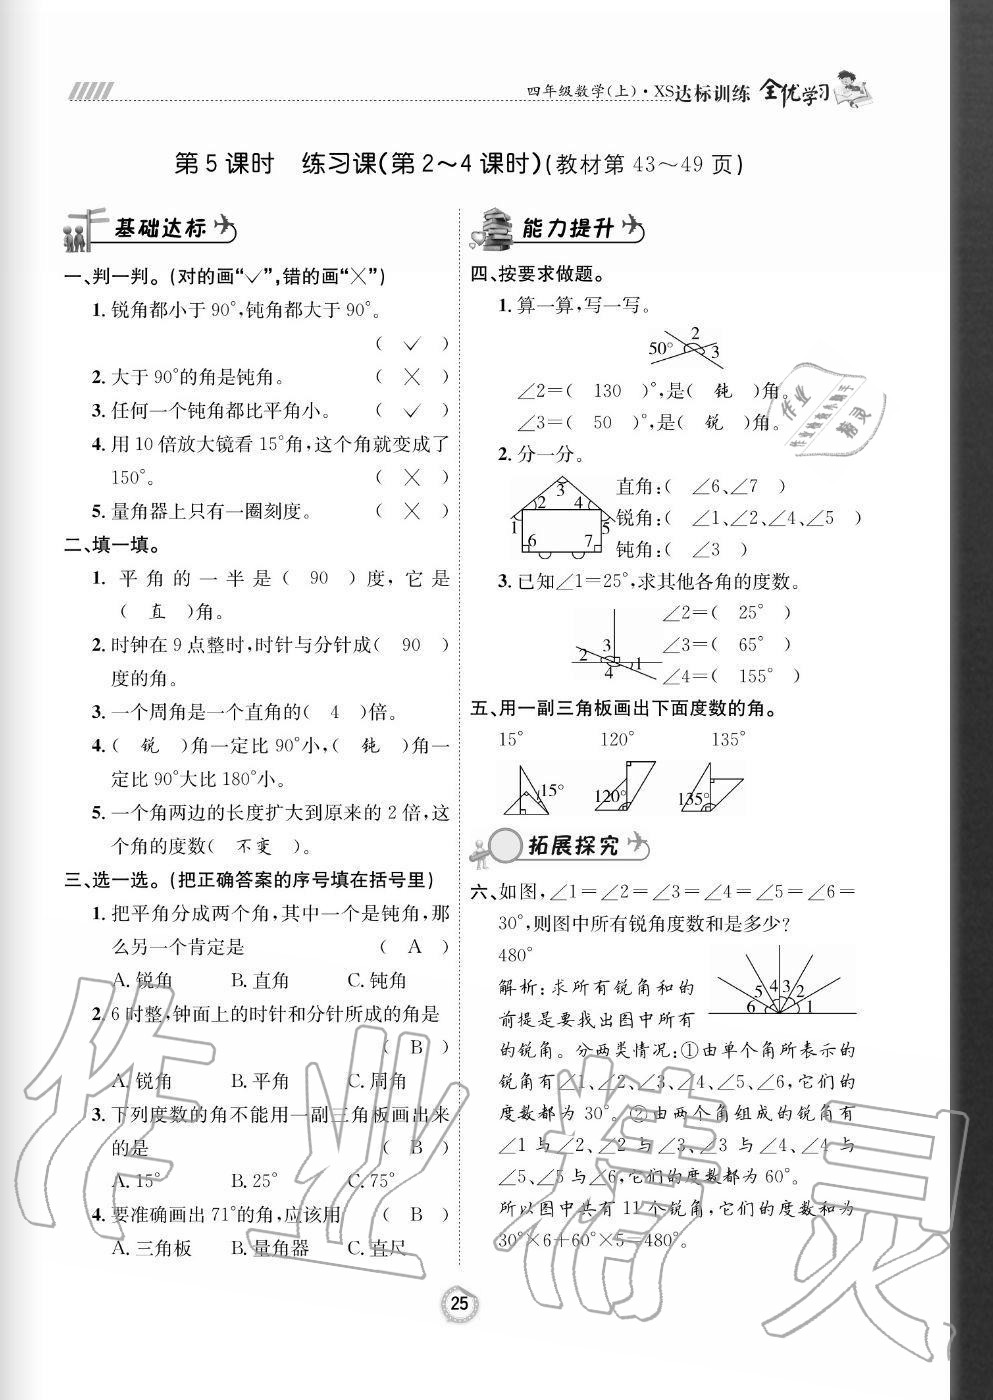 四年级数学(上)·XS达标训练 全优学习
第5课时 练习课(第2～4课时)(教材第43～49页)
基础达标
一、判一判。(对的画“✓”,错的画“✕”)
1. 锐角都小于90°,钝角都大于90°。
( ✓ )
2. 大于90°的角是钝角。 ( ✕ )
3. 任何一个钝角都比平角小。 ( ✓ )
4. 用10倍放大镜看15°角,这个角就变成了
150°。 ( ✕ )
5. 量角器上只有一圈刻度。 ( ✕ )
二、填一填。
1. 平角的一半是( 90 )度,它是
( 直 )角。
2. 时钟在9点整时,时针与分针成( 90 )
度的角。
3. 一个周角是一个直角的( 4 )倍。
4. ( 锐 )角一定比90°小,( 钝 )角一
定比90°大比180°小。
5. 一个角两边的长度扩大到原来的2倍,这
个角的度数( 不变 )。
三、选一选。(把正确答案的序号填在括号里)
1. 把平角分成两个角,其中一个是钝角,那
么另一个肯定是 ( A )
A. 锐角 B. 直角 C. 钝角
2. 6时整,钟面上的时针和分针所成的角是
( B )
A. 锐角 B. 平角 C. 周角
3. 下列度数的角不能用一副三角板画出来
的是 ( B )
A. 15° B. 25° C. 75°
4. 要准确画出71°的角,应该用 ( B )
A. 三角板 B. 量角器 C. 直尺
能力提升
四、按要求做题。
1. 算一算,写一写。
50° 2 3
∠2=( 130 )°,是( 钝 )角。
∠3=( 50 )°,是( 锐 )角。
2. 分一分。
1 2 3 4 5 6 7
直角:( ∠6、∠7 )
锐角:( ∠1、∠2、∠4、∠5 )
钝角:( ∠3 )
3. 已知∠1=25°,求其他各角的度数。
2 3 4 1
∠2=( 25° )
∠3=( 65° )
∠4=( 155° )
五、用一副三角板画出下面度数的角。
15° 120° 135°
15° 120° 135°
拓展探究
六、如图,∠1=∠2=∠3=∠4=∠5=∠6=
30°,则图中所有锐角度数和是多少?
480°
6 5 4 3 2 1
解析:求所有锐角和的
前提是要找出图中所有
的锐角。分两类情况:①由单个角所表示的
锐角有∠1、∠2、∠3、∠4、∠5、∠6,它们的
度数都为30°。②由两个角组成的锐角有
∠1与∠2、∠2与∠3、∠3与∠4、∠4与
∠5、∠5与∠6,它们的度数都为60°。
所以图中共有11个锐角,它们的度数和为
30°×6+60°×5=480°。
25
作业精灵
作业
精灵